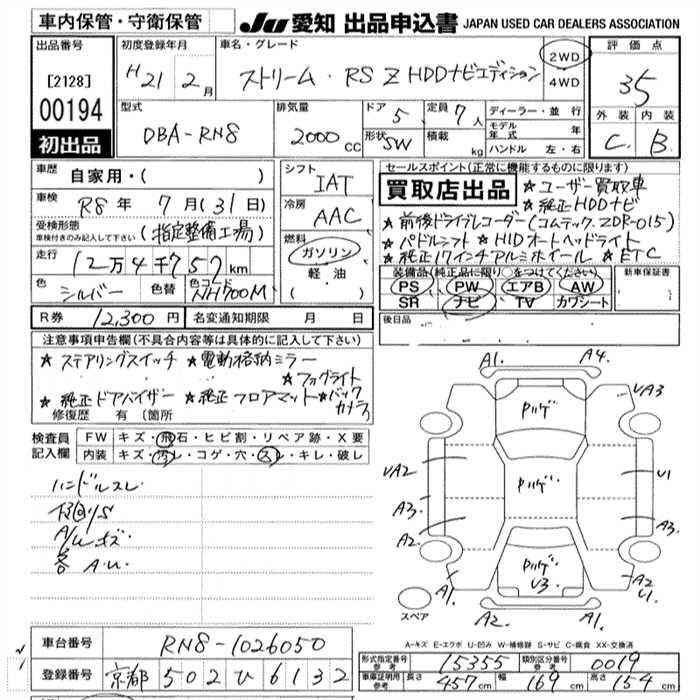 車内保管・守衛保管
JU 愛知 出品申込書 JAPAN USED CAR DEALERS ASSOCIATION
出品番号 [2128] 00194 初出品
初度登録年月 H21年 2月
車名・グレード ストリーム・RS Z HDDナビエディション
2WD 4WD
評価点 35
外装 C 内装 B
型式 DBA-RN8
排気量 2000 CC
ドア 5 形状 SW
定員 7人 積載 kg
ディーラー・並行
モデル年式 年
ハンドル 左・右
車歴 自家用・( )
車検 R8年 7月(31日)
受検形態 車検付きのみ記入して下さい (指定整備工場)
走行 12万4千757km
色 シルバー 色替 色コード NH700M
シフト IAT
冷房 AAC
燃料 ガソリン 軽・油
セールスポイント(正常に機能するものに限ります)
買取店出品 ★ユーザー買取車
★純正HDDナビ
★前後ドライブレコーダー(コムテック.ZDR-015)
★パドルシフト ★HIDオートヘッドライト
★純正17インチアルミホイール ★ETC
装備品(純正品に限り○をつけてください) 新車保証書
PS PW エアB AW
SR ナビ TV カワシート
R券 12,300円 名変通知期限 月 日
後日品
注意事項申告欄(不具合内容等は具体的に記入して下さい)
★ステアリングスイッチ ★電動格納ミラー
★フォグライト
★純正ドアバイザー ★純正フロアマット ★バックカメラ
修復歴 有(箇所
検査員記入欄
FW キズ・飛石・ヒビ割・リペア跡・X要
内装 キズ・汚レ・コゲ・穴・スレ・キレ・破レ
ハンドルスレ
A/Wキズ
各 A.U.
A1. A4.
VA3
VA2 U1
A3. A3.
A2.
U3 A2
U1.
A1. A2 A1.
スペア
A-キズ E-エクボ U-凹み W-補修跡 S-サビ C-腐食 XX-交換済
車台番号 RN8-1026050
登録番号 京都 502 ひ 6132
形式指定番号 参考 15355 類別区分番号 参考 0019
車庫証明用参考 長さ 457cm 幅 169cm 高さ 154cm